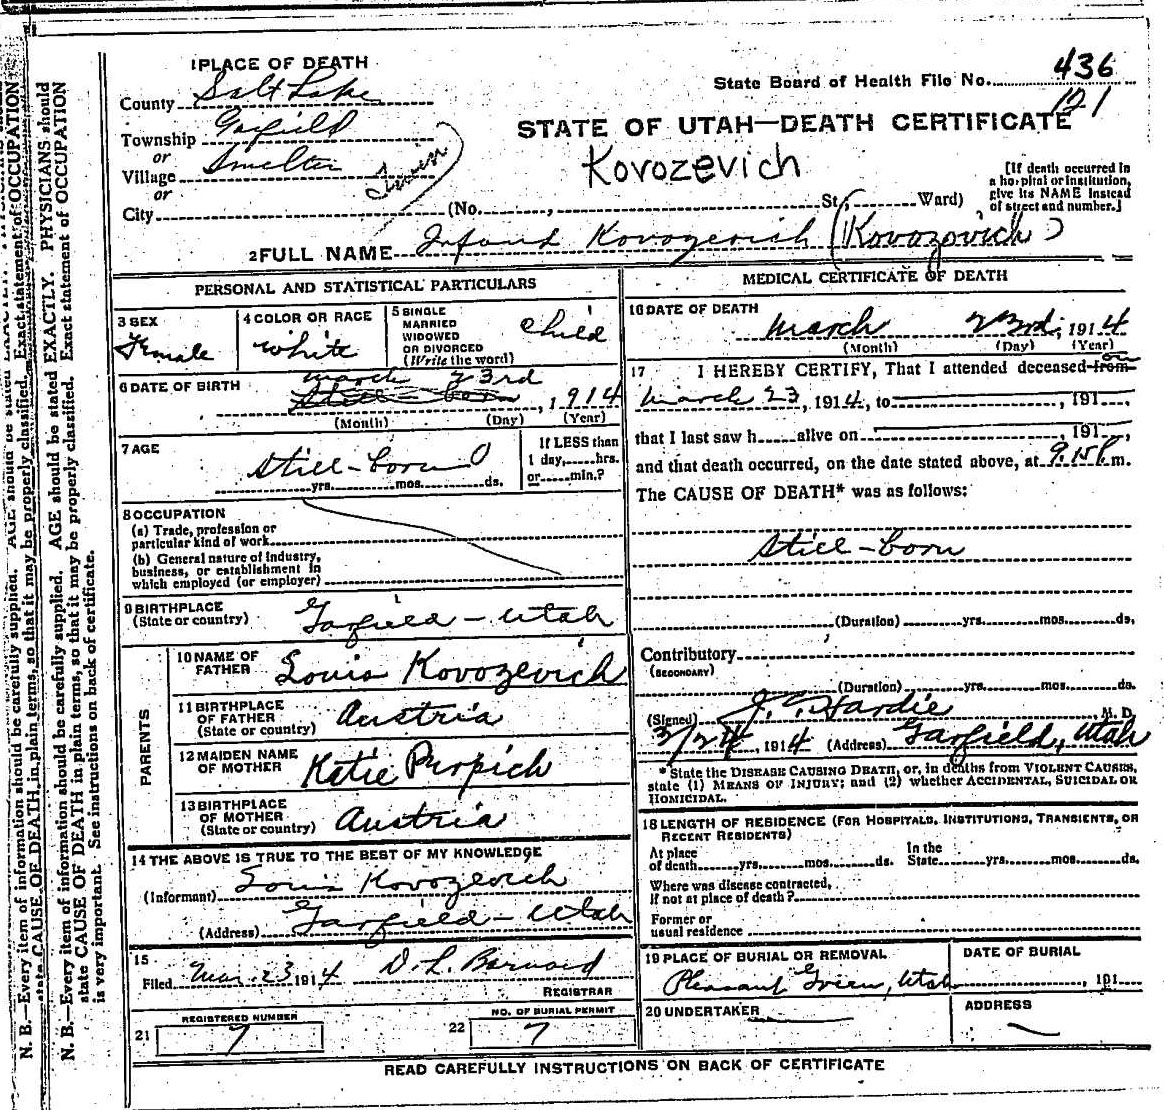 1 PLACE OF DEATH
County Salt Lake
Township Garfield
or
Village Smelter
or
City (No. , St. Ward)
Twin
State Board of Health File No. 436
121
STATE OF UTAH—DEATH CERTIFICATE
Kovozevich
[If death occurred in
a hospital or institution,
give its NAME instead
of street and number.]
2 FULL NAME Infant Kovozevich (Kovozovich)
PERSONAL AND STATISTICAL PARTICULARS
3 SEX
Female
4 COLOR OR RACE
White
5 SINGLE
MARRIED
WIDOWED
OR DIVORCED
(Write the word)
child
6 DATE OF BIRTH
March 23rd
Still-born, 1914
(Month) (Day) (Year)
7 AGE
Still-born
yrs. mos. ds.
If LESS than
1 day, hrs.
or min.?
8 OCCUPATION
(a) Trade, profession or
particular kind of work
(b) General nature of industry,
business, or establishment in
which employed (or employer)
9 BIRTHPLACE
(State or country)
Garfield - Utah
PARENTS
10 NAME OF
FATHER
Louis Kovozevich
11 BIRTHPLACE
OF FATHER
(State or country)
Austria
12 MAIDEN NAME
OF MOTHER
Katie Purpich
13 BIRTHPLACE
OF MOTHER
(State or country)
Austria
14 THE ABOVE IS TRUE TO THE BEST OF MY KNOWLEDGE
(Informant) Louis Kovozevich
(Address) Garfield - Utah
15
Filed Mar. 23 1914 D. L. Barnard
REGISTRAR
21
REGISTERED NUMBER
7
22
NO. OF BURIAL PERMIT
7
MEDICAL CERTIFICATE OF DEATH
16 DATE OF DEATH
March 23rd, 1914
(Month) (Day) (Year)
17 I HEREBY CERTIFY, That I attended deceased from on
March 23, 1914, to , 191 ,
that I last saw h alive on , 191 ,
and that death occurred, on the date stated above, at 9.15 P. m.
The CAUSE OF DEATH* was as follows:
Still-born
(Duration) yrs. mos. ds.
Contributory
(SECONDARY)
(Duration) yrs. mos. ds.
(Signed) J. E. Hardie M. D.
3/24, 1914 (Address) Garfield, Utah
* State the DISEASE CAUSING DEATH, or, in deaths from VIOLENT CAUSES,
state (1) MEANS OF INJURY; and (2) whether ACCIDENTAL, SUICIDAL OR
HOMICIDAL.
18 LENGTH OF RESIDENCE (FOR HOSPITALS, INSTITUTIONS, TRANSIENTS, OR
RECENT RESIDENTS)
At place
of death yrs. mos. ds.
In the
State yrs. mos. ds.
Where was disease contracted,
if not at place of death?
Former or
usual residence
19 PLACE OF BURIAL OR REMOVAL
Pleasant Green, Utah
DATE OF BURIAL
, 191
20 UNDERTAKER
ADDRESS
READ CAREFULLY INSTRUCTIONS ON BACK OF CERTIFICATE
N. B.—Every item of information should be carefully supplied. AGE should be stated EXACTLY. PHYSICIANS should
state CAUSE OF DEATH in plain terms, so that it may be properly classified. Exact statement of OCCUPATION
is very important. See instructions on back of certificate.
N. B.—Every item of information should be carefully supplied. AGE should be stated
state CAUSE OF DEATH in plain terms, so that it may be properly classified. Exact statement of OCCUPATION